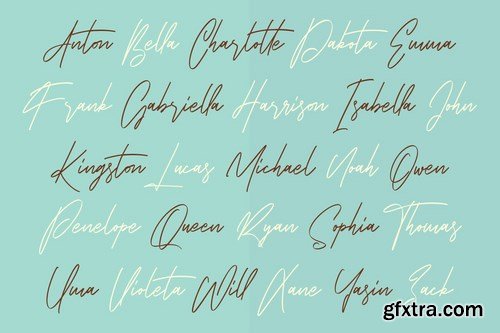 Anton Bella Charlotte Dakota Emma
Frank Gabriella Harrison Isabella John
Kingston Lucas Michael Noah Owen
Penelope Queen Ryan Sophia Thomas
Uma Violeta Will Xane Yasin Zack
gfxtra.com